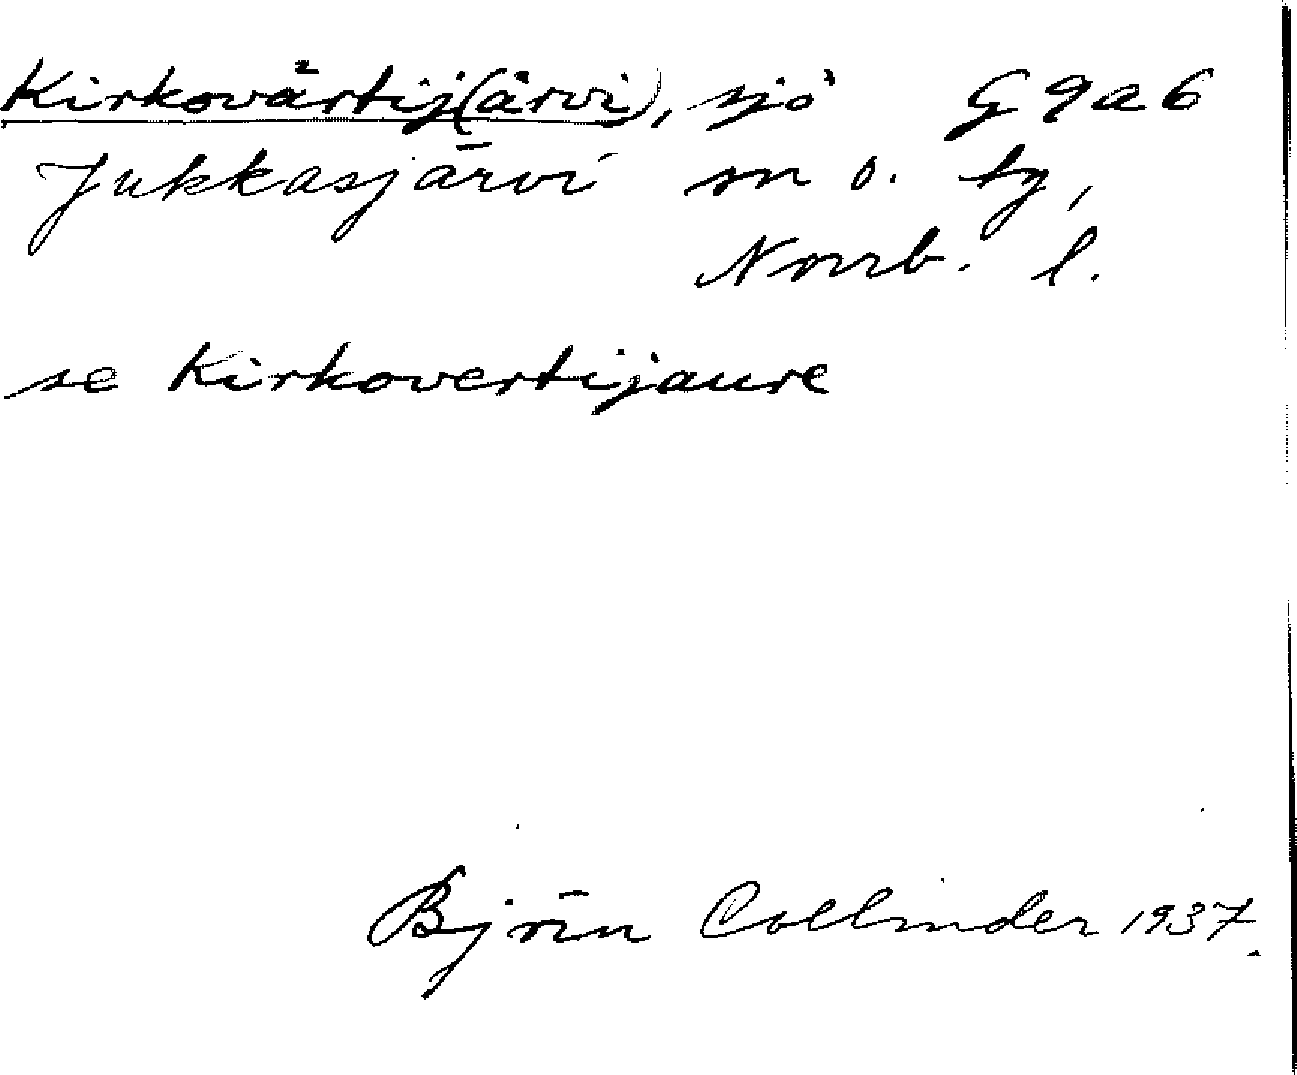 Kirkovärtij(ärvi), sjö G9a6
Jukkasjärvi sn o. tg,
Norrb. l.
se Kirkovertijaure
Björn Collinder 1937.